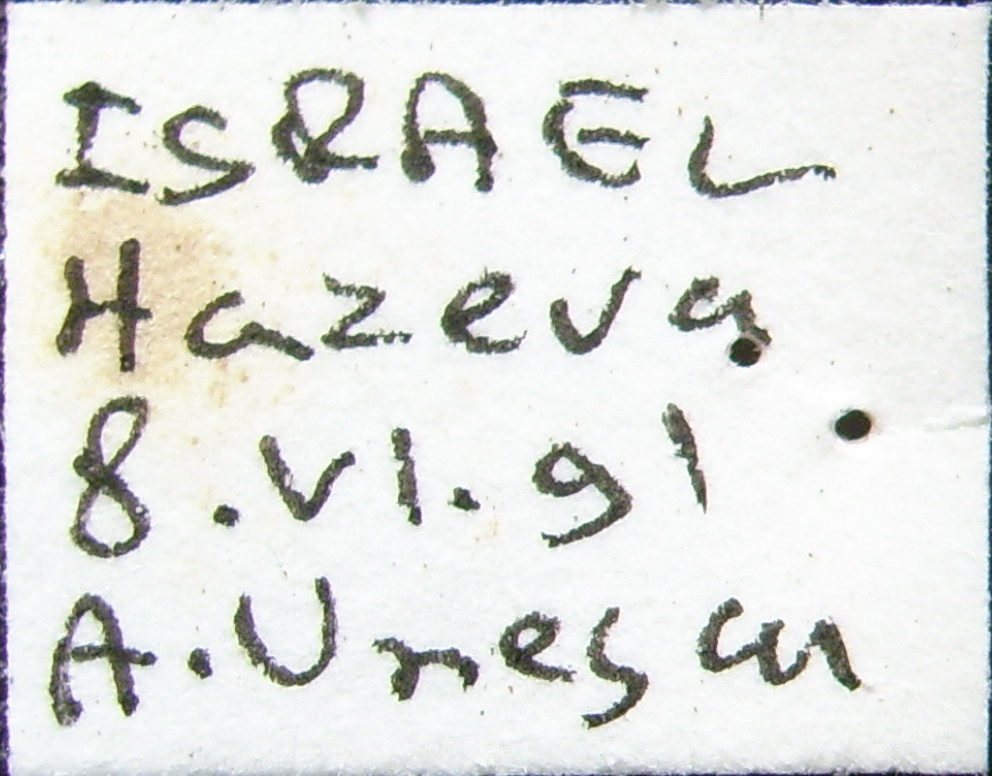 ISRAEL
Hazeva
8.VI.91
A.Unescu